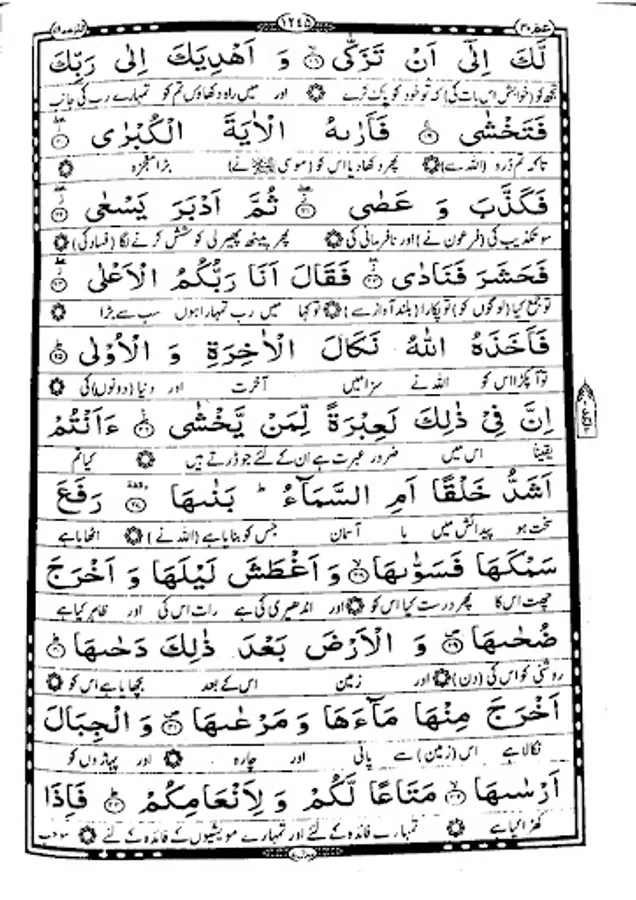 ١٢٤٥
لَّكَ اِلٰٓى اَنْ تَزَكّٰى ۙ وَ اَهْدِيَكَ اِلٰى رَبِّكَ
تجھ کو (خواہش اس بات کی) کہ تو خود کو پاک کرے اور میں راہ دکھاؤں تم کو تمہارے رب کی جانب
فَتَخْشٰى ۚ فَاَرٰىهُ الْاٰيَةَ الْكُبْرٰى
تاکہ تم ڈرو (اللہ سے) پھر دکھا دیا اس کو (موسی ﷺ نے) بڑا معجزہ
فَكَذَّبَ وَ عَصٰى ۖ ثُمَّ اَدْبَرَ يَسْعٰى
سو تکذیب کی (فرعون نے) اور نافرمانی کی پھر پیٹھ پھیر لی کوشش کرنے لگا (فساد کی)
فَحَشَرَ فَنَادٰى ۖ فَقَالَ اَنَا رَبُّكُمُ الْاَعْلٰى
تو جمع کیا (لوگوں کو) تو پکارا (بلند آواز سے) تو کہا میں رب تمہارا ہوں سب سے بڑا
فَاَخَذَهُ اللّٰهُ نَكَالَ الْاٰخِرَةِ وَ الْاُوْلٰى
تو آ پکڑا اس کو اللہ نے سزا میں آخرت اور دنیا (دونوں) کی
اِنَّ فِىْ ذٰلِكَ لَعِبْرَةً لِّمَنْ يَّخْشٰى ۗ ءَاَنْتُمْ
یقینا اس میں ضرور عبرت ہے ان کے لئے جو ڈرتے ہیں کیا تم
اَشَدُّ خَلْقًا اَمِ السَّمَآءُ ؕ بَنٰىهَا رَفَعَ
سخت ہو پیدائش میں یا آسمان جس کو بنایا ہے (اللہ نے) اٹھایا ہے
سَمْكَهَا فَسَوّٰىهَا ۙ وَ اَغْطَشَ لَيْلَهَا وَ اَخْرَجَ
چھت اس کا پھر درست کیا اس کو اور اندھیری کی ہے رات اس کی اور ظاہر کیا ہے
ضُحٰىهَا ۪ وَ الْاَرْضَ بَعْدَ ذٰلِكَ دَحٰىهَا
روشنی کو اس کی (دن) اور زمین اس کے بعد بچھایا ہے اس کو
اَخْرَجَ مِنْهَا مَآءَهَا وَ مَرْعٰىهَا ۪ وَ الْجِبَالَ
نکالا ہے اس (زمین) سے پانی اور چارہ اور پہاڑوں کو
اَرْسٰىهَا ۙ مَتَاعًا لَّكُمْ وَ لِاَنْعَامِكُمْ ۗ فَاِذَا
کھڑا کیا ہے تمہارے فائدہ کے لئے اور تمہارے مویشیوں کے فائدہ کے لئے سو جب